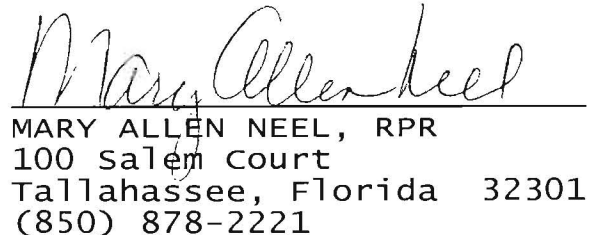 Mary Allen Neel
MARY ALLEN NEEL, RPR
100 Salem Court
Tallahassee, Florida 32301
(850) 878-2221